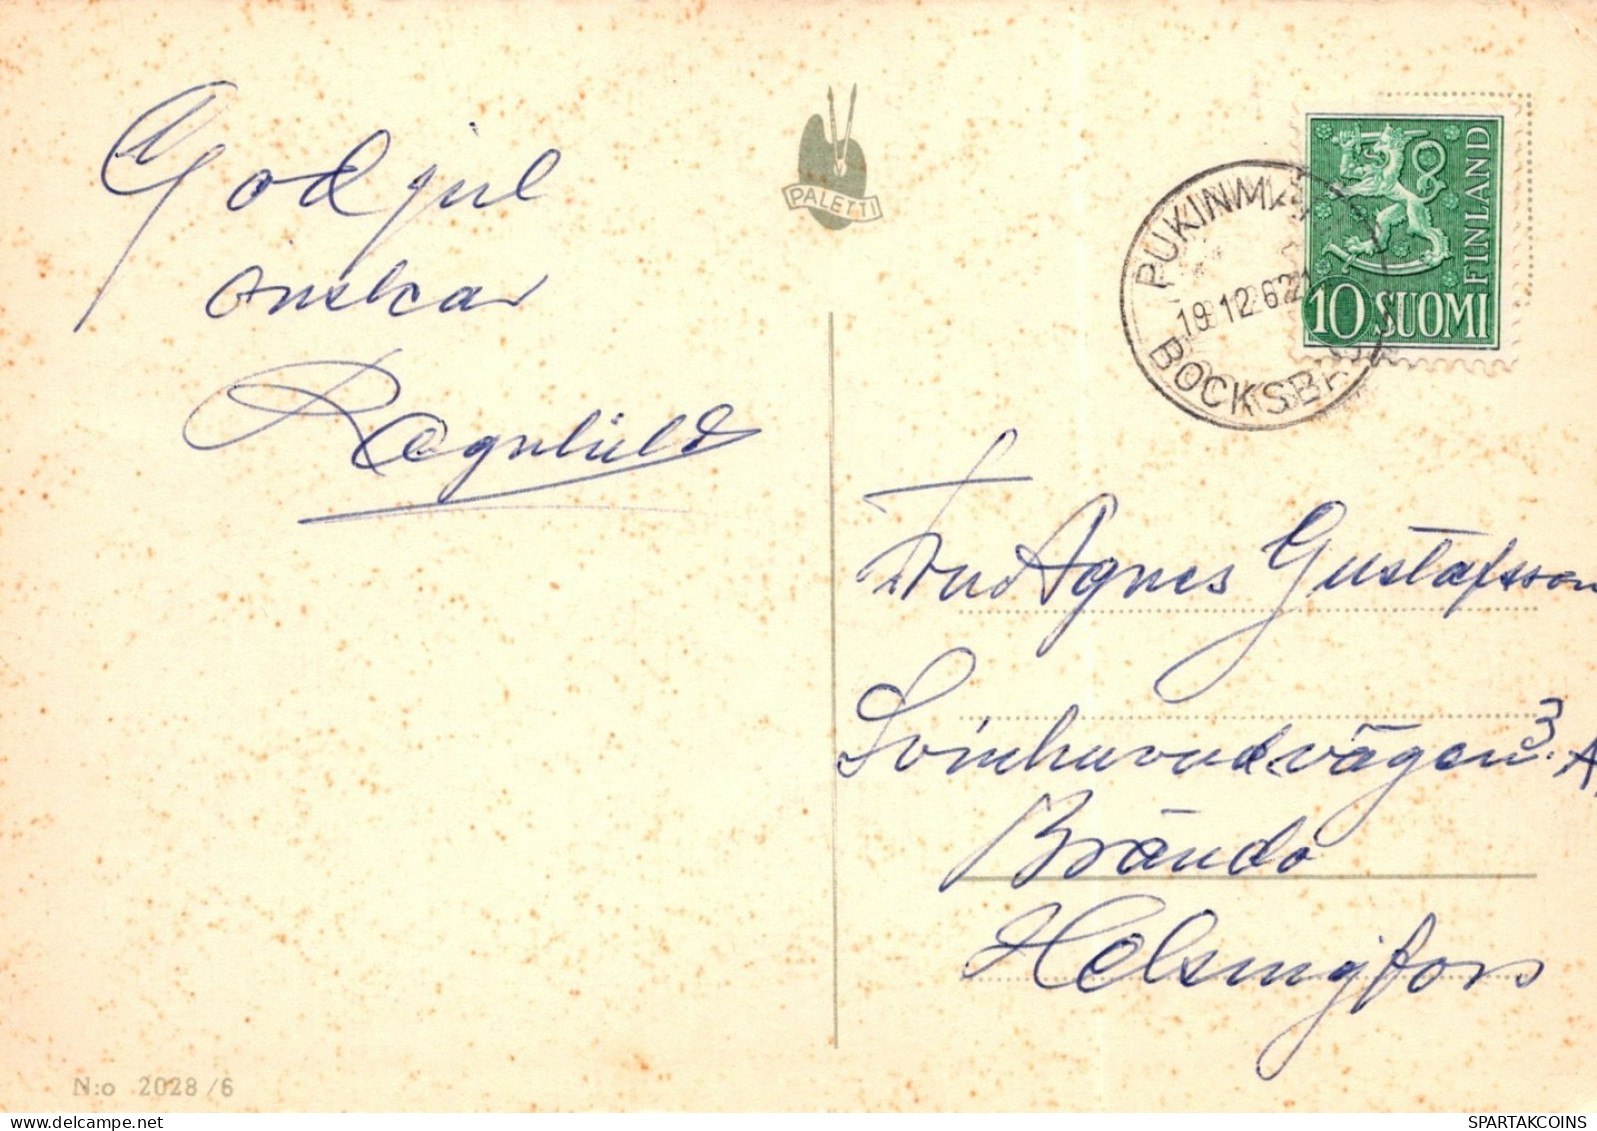 God jul
önskar
Ragnhild
PALETTI
PUKINMÄ
19.12.62
BOCKSB
FINLAND
10 SUOMI
Fru Agnes Gustafsson
Svinhuvudvägen 3. A
Brändö
Helsingfors
N:o 2028/6
SPARTAKCOINS